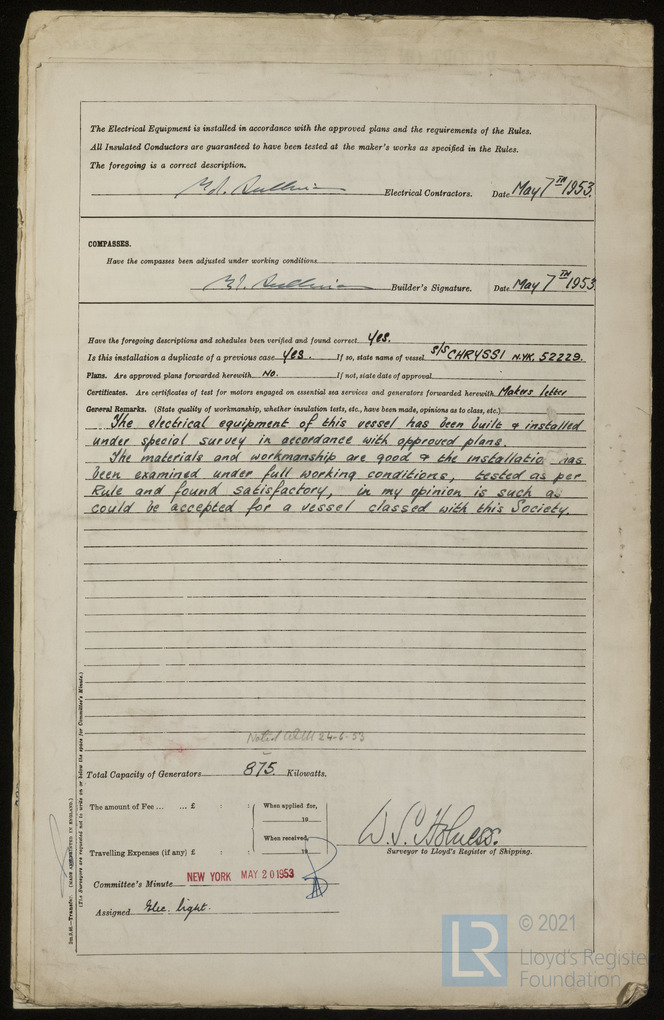 The Electrical Equipment is installed in accordance with the approved plans and the requirements of the Rules.
All Insulated Conductors are guaranteed to have been tested at the maker's works as specified in the Rules.
The foregoing is a correct description.
Electrical Contractors. Date May 7TH 1953.
COMPASSES.
Have the compasses been adjusted under working conditions
Builder's Signature. Date May 7TH 1953
Have the foregoing descriptions and schedules been verified and found correct yes.
Is this installation a duplicate of a previous case yes. If so, state name of vessel S/S CHRYSSI N.YK. 52229.
Plans. Are approved plans forwarded herewith No. If not, state date of approval
Certificates. Are certificates of test for motors engaged on essential sea services and generators forwarded herewith Makers letter
General Remarks. (State quality of workmanship, whether insulation tests, etc., have been made, opinions as to class, etc.)
The electrical equipment of this vessel has been built & installed
under special survey in accordance with approved plans.
The materials and workmanship are good & the installatio has
been examined under full working conditions, tested as per
Rule and found satisfactory, in my opinion is such as
could be accepted for a vessel classed with this Society.
Noted 24-6-53
Total Capacity of Generators 875 Kilowatts.
The amount of Fee ... ... £ : : When applied for,
19
When received,
Travelling Expenses (if any) £ : : 19
W. S. Holness.
Surveyor to Lloyd's Register of Shipping.
Committee's Minute NEW YORK MAY 20 1953
Assigned Elec. light.
(The Surveyors are requested not to write on or below the space for Committee's Minute.)
(MADE AND PRINTED IN ENGLAND.)
© 2021
LR Lloyd's Register
Foundation